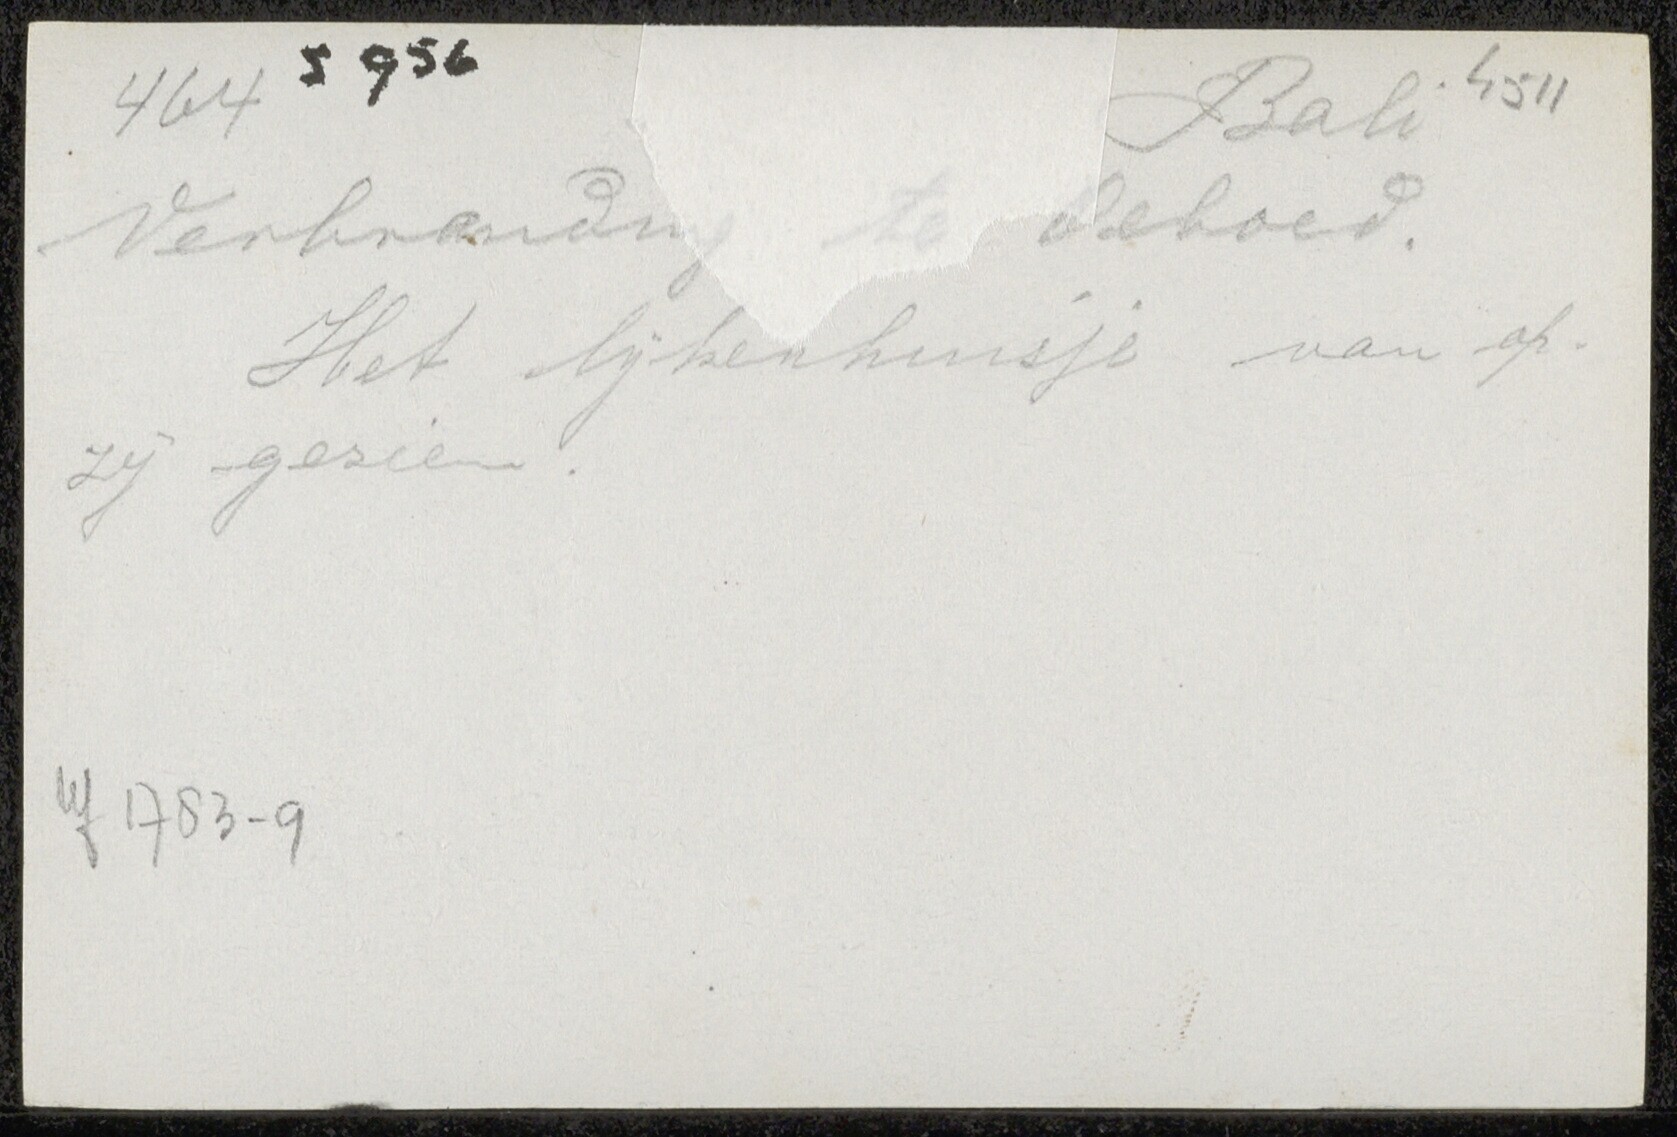 464 5956 Bali 4511
Verbranding te Oeboed.
Het lijkenhuisje van op-
zij gezien.
1783-9